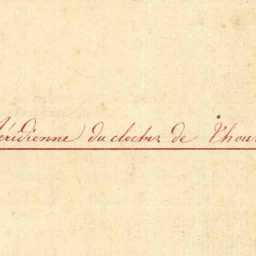 éridienne du clocher de Thou